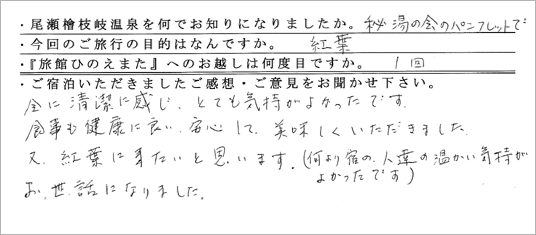 ・尾瀬檜枝岐温泉を何でお知りになりましたか。秘湯の会のパンフレットで
・今回のご旅行の目的はなんですか。 紅葉
・『旅館ひのえまた』へのお越しは何度目ですか。 1回
・ご宿泊いただきましたご感想・ご意見をお聞かせ下さい。
全に清潔に感じ、とても気持がよかったです。
食事も健康に良い、安心して、美味しくいただきました。
又、紅葉に来たいと思います。(何より宿の人達の温かい気持が
よかったです)
お世話になりました。